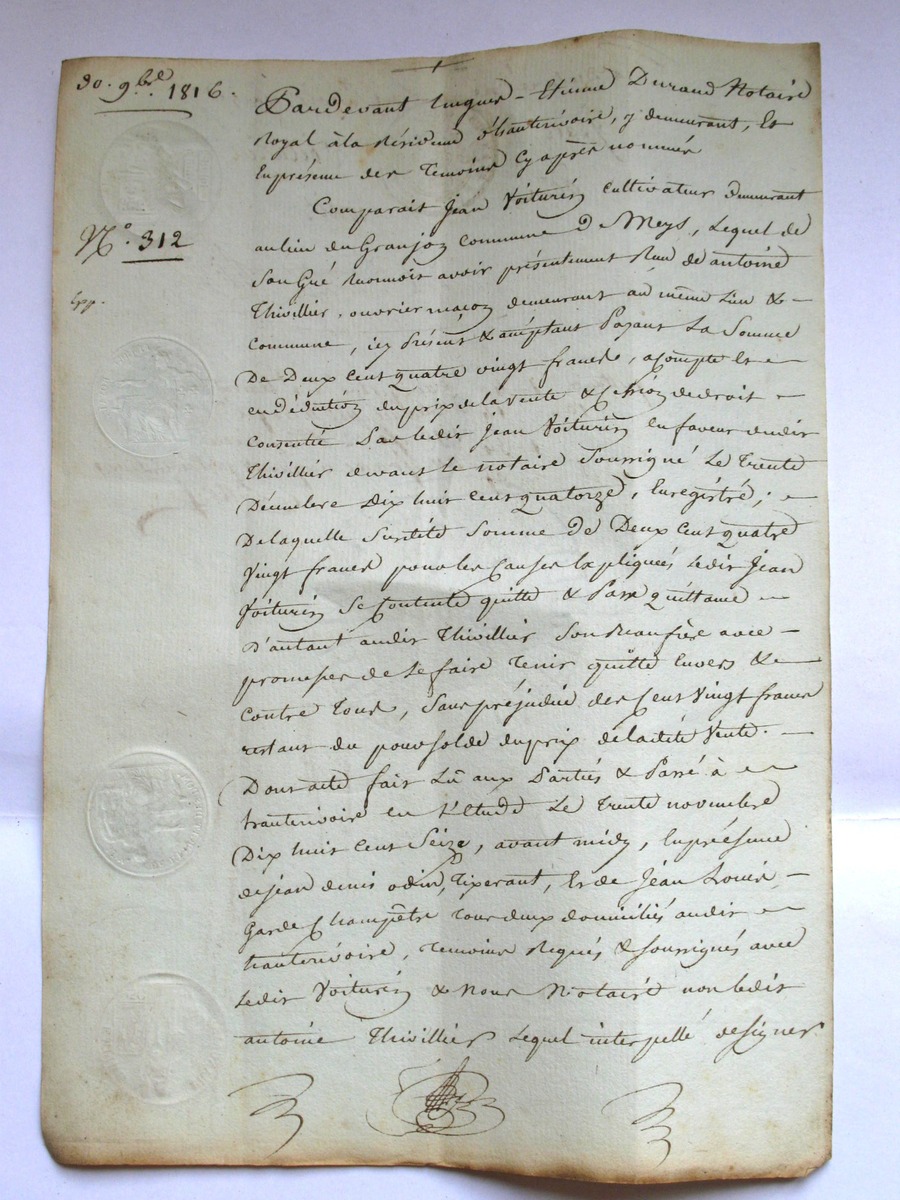 30. 9bre. 1816.
N°. 312
Pardevant hugues-Etienne Durand Notaire
Royal à la Résidence d'hauterivoire, y demeurant, Et
En présence des Temoins Cy après nommés
Comparait Jean Voiturin cultivateur demeurant
au lieu du Granjon commune d Meys, Lequel de
Son Gré reconnoit avoir présentement Reçu de antoine
Thivillier, ouvrier maçon demeurant au même Lieu &
Commune, icy Présent & acceptant Payant La Somme
De Deux Cent quatre vingt francs, acompte Et
en Déduction du prix de la vente & Cession de droit
Consentie Par ledit Jean Voiturin en faveur dudit
Thivillier devant le notaire Soussigné Le Trente
Décembre Dix huit Cent quatorze, Enregistré;
De laquelle Susdite Somme de Deux cent quatre
Vingt francs pour les Causes Expliquées Ledit Jean
Voiturin Se Contente quitte & Passe quittance
D'autant audit Thivillier Son Beaufrère avec
promesse de le faire Tenir quitte Envers &
Contre Tous, Sans préjudice des Cent Vingt francs
restant du pour solde du prix de ladite Vente.
Dont acte fait Lû aux Parties & Passé à
hauterivoire en L'Etude Le Trente novembre
Dix huit Cent Seize, avant midy, En présence
de jean denis odin, Tixerant, Et de Jean Louis
Garde Champêtre Tous deux domiciliés audit
hauterivoire, Temoins Requis & soussignés avec
Ledit Voiturin & Nous Notaire non ledit
antoine Thivillier Lequel interpellé de Signer